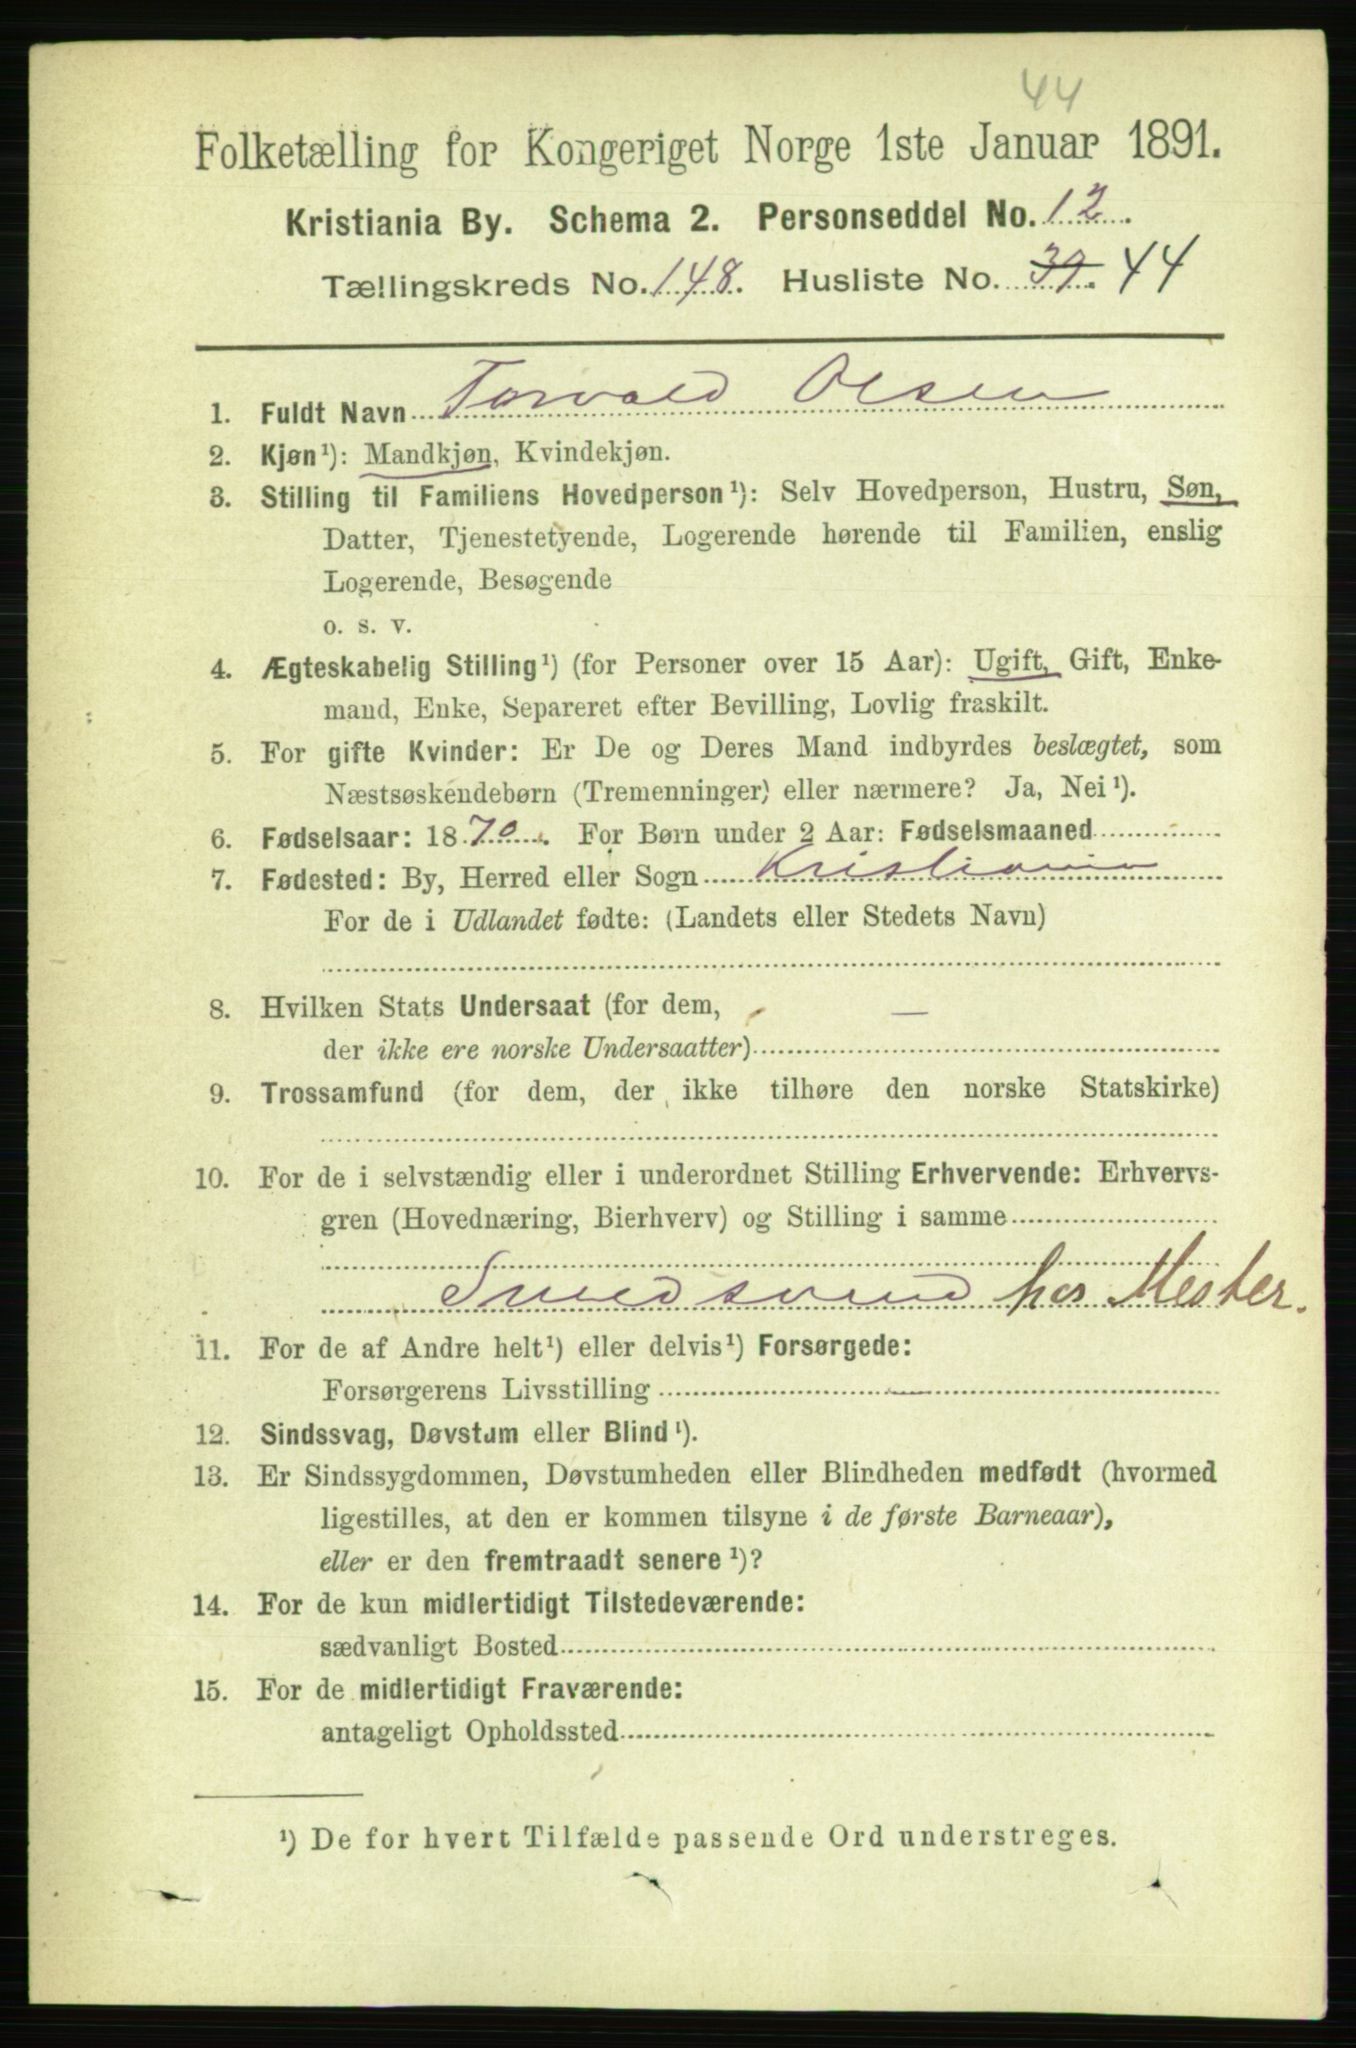 44
Folketælling for Kongeriget Norge 1ste Januar 1891.
Kristiania By. Schema 2. Personseddel No. 12.
Tællingskreds No. 148. Husliste No. 39. 44
1. Fuldt Navn Torvald Olsen
2. Kjøn¹): Mandkjøn, Kvindekjøn.
3. Stilling til Familiens Hovedperson¹): Selv Hovedperson, Hustru, Søn,
Datter, Tjenestetyende, Logerende hørende til Familien, enslig
Logerende, Besøgende
o. s. v.
4. Ægteskabelig Stilling¹) (for Personer over 15 Aar): Ugift, Gift, Enke-
mand, Enke, Separeret efter Bevilling, Lovlig fraskilt.
5. For gifte Kvinder: Er De og Deres Mand indbyrdes beslægtet, som
Næstsøskendebørn (Tremenninger) eller nærmere? Ja, Nei¹).
6. Fødselsaar: 1870. For Børn under 2 Aar: Fødselsmaaned
7. Fødested: By, Herred eller Sogn Kristiania
For de i Udlandet fødte: (Landets eller Stedets Navn)
8. Hvilken Stats Undersaat (for dem, —
der ikke ere norske Undersaatter)
9. Trossamfund (for dem, der ikke tilhøre den norske Statskirke)
10. For de i selvstændig eller i underordnet Stilling Erhvervende: Erhvervs-
gren (Hovednæring, Bierhverv) og Stilling i samme
Smedsvend hos Mester.
11. For de af Andre helt¹) eller delvis¹) Forsørgede:
Forsørgerens Livsstilling —
12. Sindssvag, Døvstum eller Blind¹).
13. Er Sindssygdommen, Døvstumheden eller Blindheden medfødt (hvormed
ligestilles, at den er kommen tilsyne i de første Barneaar),
eller er den fremtraadt senere¹)?
14. For de kun midlertidigt Tilstedeværende:
sædvanligt Bosted
15. For de midlertidigt Fraværende:
antageligt Opholdssted
¹) De for hvert Tilfælde passende Ord understreges.